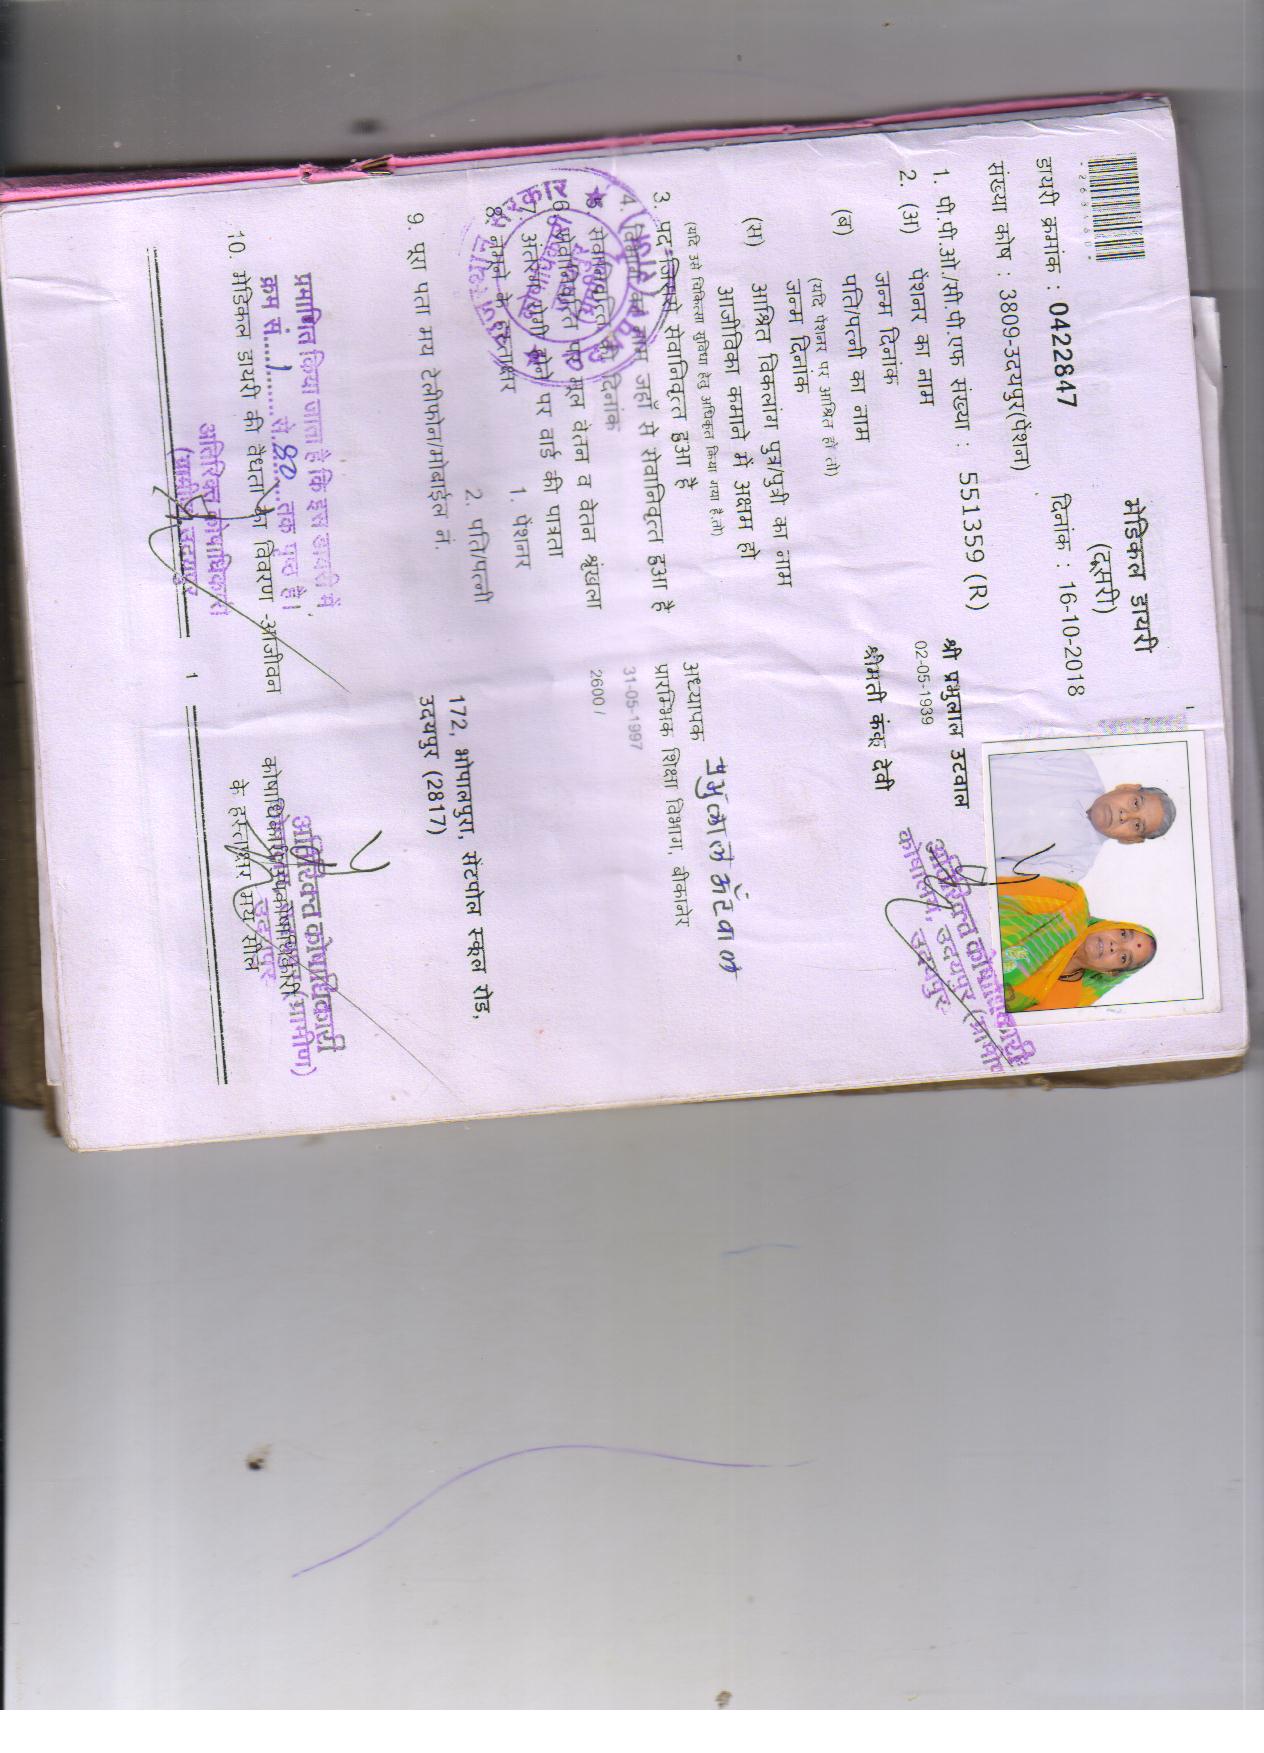 मेडिकल डायरी
(दूसरी)
डायरी क्रमांक : 0422847
दिनांक : 16-10-2018
संख्या कोष : 3809-उदयपुर(पेंशन)
1. पी.पी.ओ./सी.पी.एफ संख्या : 551359 (R)
2. (अ) पेंशनर का नाम श्री प्रभुलाल उटवाल
जन्म दिनांक 02-05-1939
(ब) पति/पत्नी का नाम श्रीमती कंकू देवी
(यदि पेंशनर पर आश्रित हो तो)
जन्म दिनांक
(स) आश्रित विकलांग पुत्र/पुत्री का नाम
आजीविका कमाने में अक्षम हो
(यदि उसे चिकित्सा सुविधा हेतु अधिकृत किया गया है.तो)
3. पद जिससे सेवानिवृत्त हुआ है अध्यापक
4. विभाग का नाम जहाँ से सेवानिवृत्त हुआ है प्रारम्भिक शिक्षा विभाग, बीकानेर
5. सेवानिवृत्ति की दिनांक 31-05-1997
6. सेवानिवृत्ति पर मूल वेतन व वेतन श्रृंखला 2600 /
7. अंतरंग रोगी होने पर वार्ड की पात्रता
8. नमूने के हस्ताक्षर 1. पेंशनर
2. पति/पत्नी
9. पूरा पता मय टेलीफोन/मोबाईल नं. 172, भोपालपुरा, सेंटपोल स्कूल रोड,
उदयपुर (2817)
प्रमाणित किया जाता है कि इस डायरी में
क्रम सं. 1 से 80 तक पृष्ठ है।
10. मेडिकल डायरी की वैधता का विवरण -आजीवन
अतिरिक्त कोषाधिकारी
(ग्रामीण) उदयपुर
अतिरिक्त कोषाधिकारी
के हस्ताक्षर मय सील
1